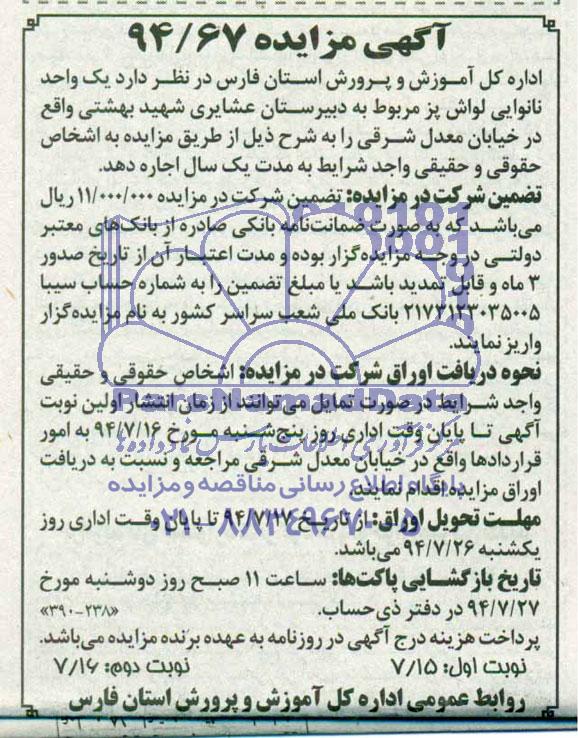 آگهی مزایده ۹۴/۶۷
اداره کل آموزش و پرورش استان فارس در نظر دارد یک واحد
نانوایی لواش پز مربوط به دبیرستان عشایری شهید بهشتی واقع
در خیابان معدل شرقی را به شرح ذیل از طریق مزایده به اشخاص
حقوقی و حقیقی واجد شرایط به مدت یک سال اجاره دهد.
تضمین شرکت در مزایده: تضمین شرکت در مزایده ۱۱/۰۰۰/۰۰۰ ریال
می‌باشد که به صورت ضمانت‌نامه بانکی صادره از بانک‌های معتبر
دولتی در وجه مزایده‌گزار بوده و مدت اعتبار آن از تاریخ صدور
۳ ماه و قابل تمدید باشد یا مبلغ تضمین را به شماره حساب سیبا
۲۱۷۳۱۲۳۰۳۵۰۰۵ بانک ملی شعب سراسر کشور به نام مزایده‌گزار
واریز نمایند.
نحوه دریافت اوراق شرکت در مزایده: اشخاص حقوقی و حقیقی
واجد شرایط در صورت تمایل می‌توانند از زمان انتشار اولین نوبت
آگهی تا پایان وقت اداری روز پنج‌شنبه مورخ ۹۴/۷/۱۶ به امور
قراردادها واقع در خیابان معدل شرقی مراجعه و نسبت به دریافت
اوراق مزایده اقدام نمایند.
پایگاه اطلاع رسانی مناقصه و مزایده
مهلت تحویل اوراق: از تاریخ ۹۴/۷/۱۷ تا پایان وقت اداری روز
۰۲۱-۸۸۳۴۹۶۷۰-۵
یکشنبه ۹۴/۷/۲۶ می‌باشد.
تاریخ بازگشایی پاکت‌ها: ساعت ۱۱ صبح روز دوشنبه مورخ
۹۴/۷/۲۷ در دفتر ذی‌حساب. «۳۹۰-۲۳۸»
پرداخت هزینه درج آگهی در روزنامه به عهده برنده مزایده می‌باشد.
نوبت اول: ۷/۱۵ نوبت دوم: ۷/۱۶
روابط عمومی اداره کل آموزش و پرورش استان فارس